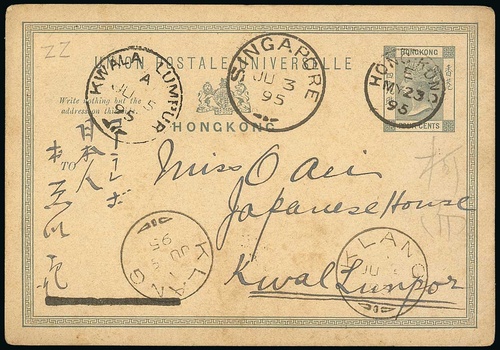 ZZ
UNION POSTALE UNIVERSELLE
HONGKONG
Write nothing but the
address on this side.
TO
HONGKONG
FOUR CENTS
HONG KONG
E
MY 23
95
SINGAPORE
JU 3
95
KWALA LUMPUR
A
JU 5
95
Miss O aii
Japanese House
Kwal Lumpor
日本人
KLANG
JU
95
KLANG
JU